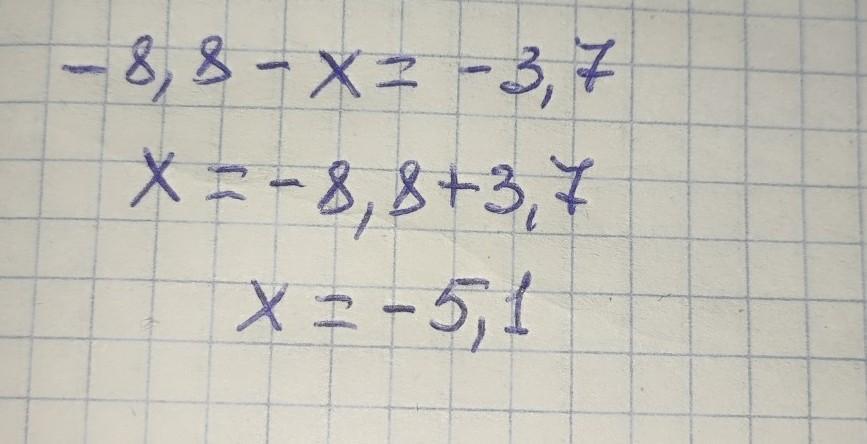 -8,8 - x = -3,7
x = -8,8+3,7
x = -5,1